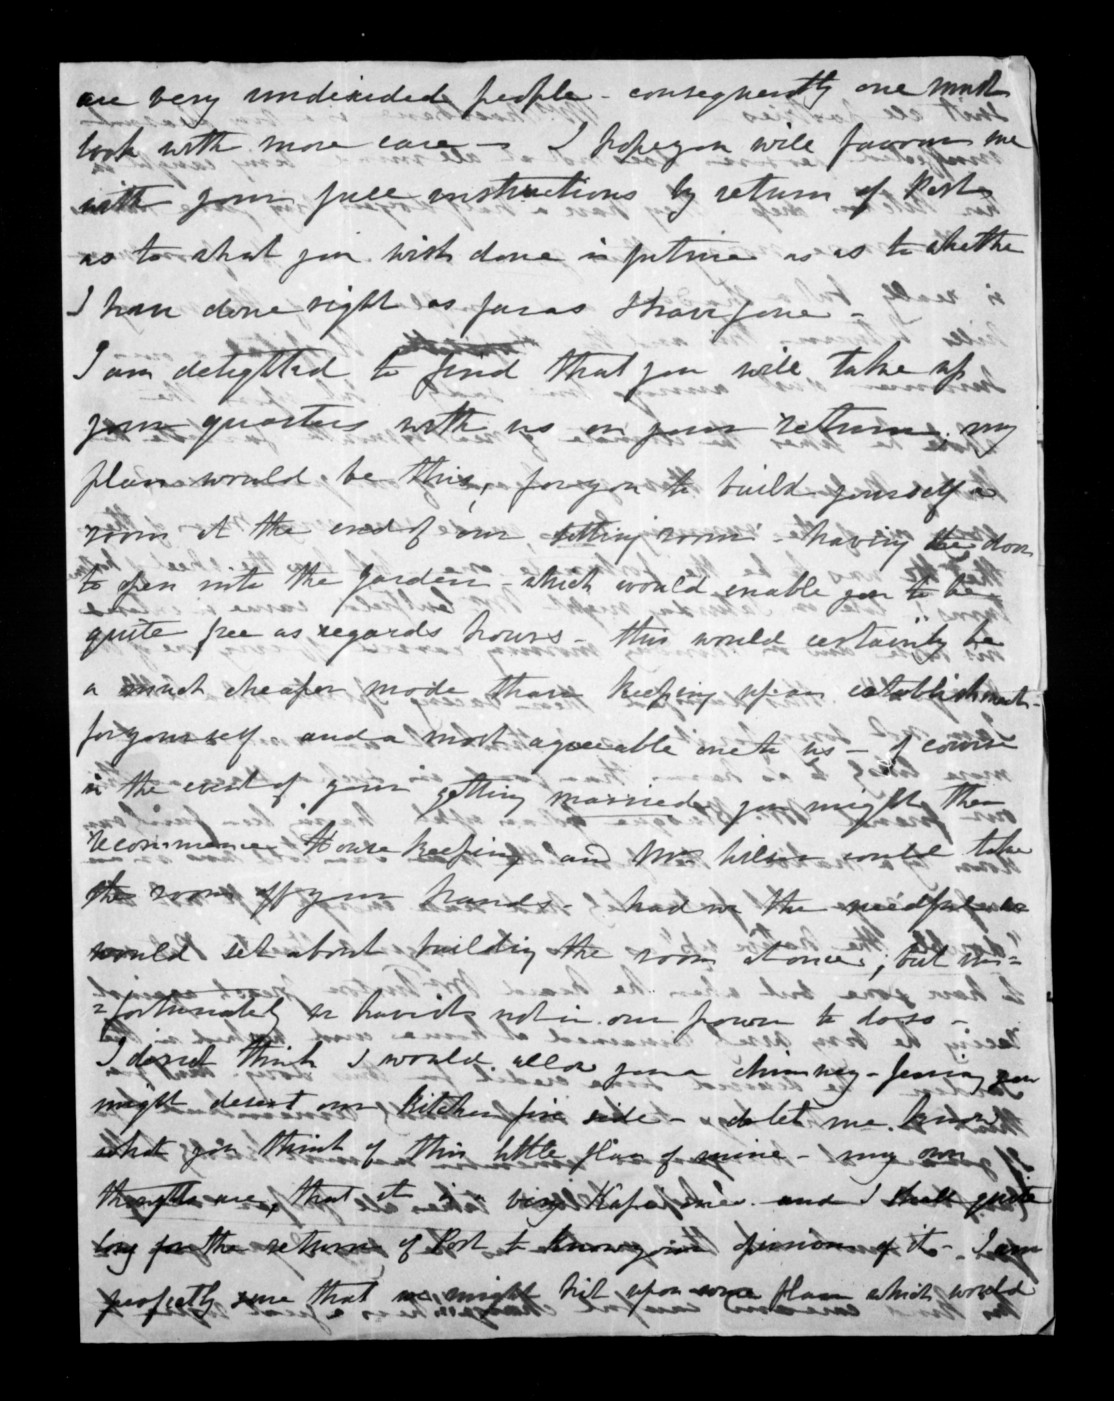 are very undecided people - consequently one must
look with more care - I hope you will favour me
with your full instructions by return of Post
as to what you wish done in future as as to whether
I have done right as far as I have gone -
I am delighted to find that you will take up
your quarters with us on your return, my
plan would be this, for you to build yourself a
room at the end of our sitting room - having the door
to open into the garden - which would enable you to be
quite free as regards hours - this would certainly be
a much cheaper mode than keeping up an establishment -
for yourself and a most agreeable one to us - of course
in the event of your getting married, you might then
recommence House keeping and Mrs could take
the room off your hands - had we the needful we
would set about building the room at once; but un=
=fortunately it is not in our power to do so -
I do not think I would allow you a chimney - fearing you
might desert our Kitchen fire side - do let me know
what you think of this little plan of mine - my own
thoughts are, that it is a very Kapai one and I shall quite
long for the return of Post to know your opinion of it - I am
perfectly sure that we might hit upon some plan which would